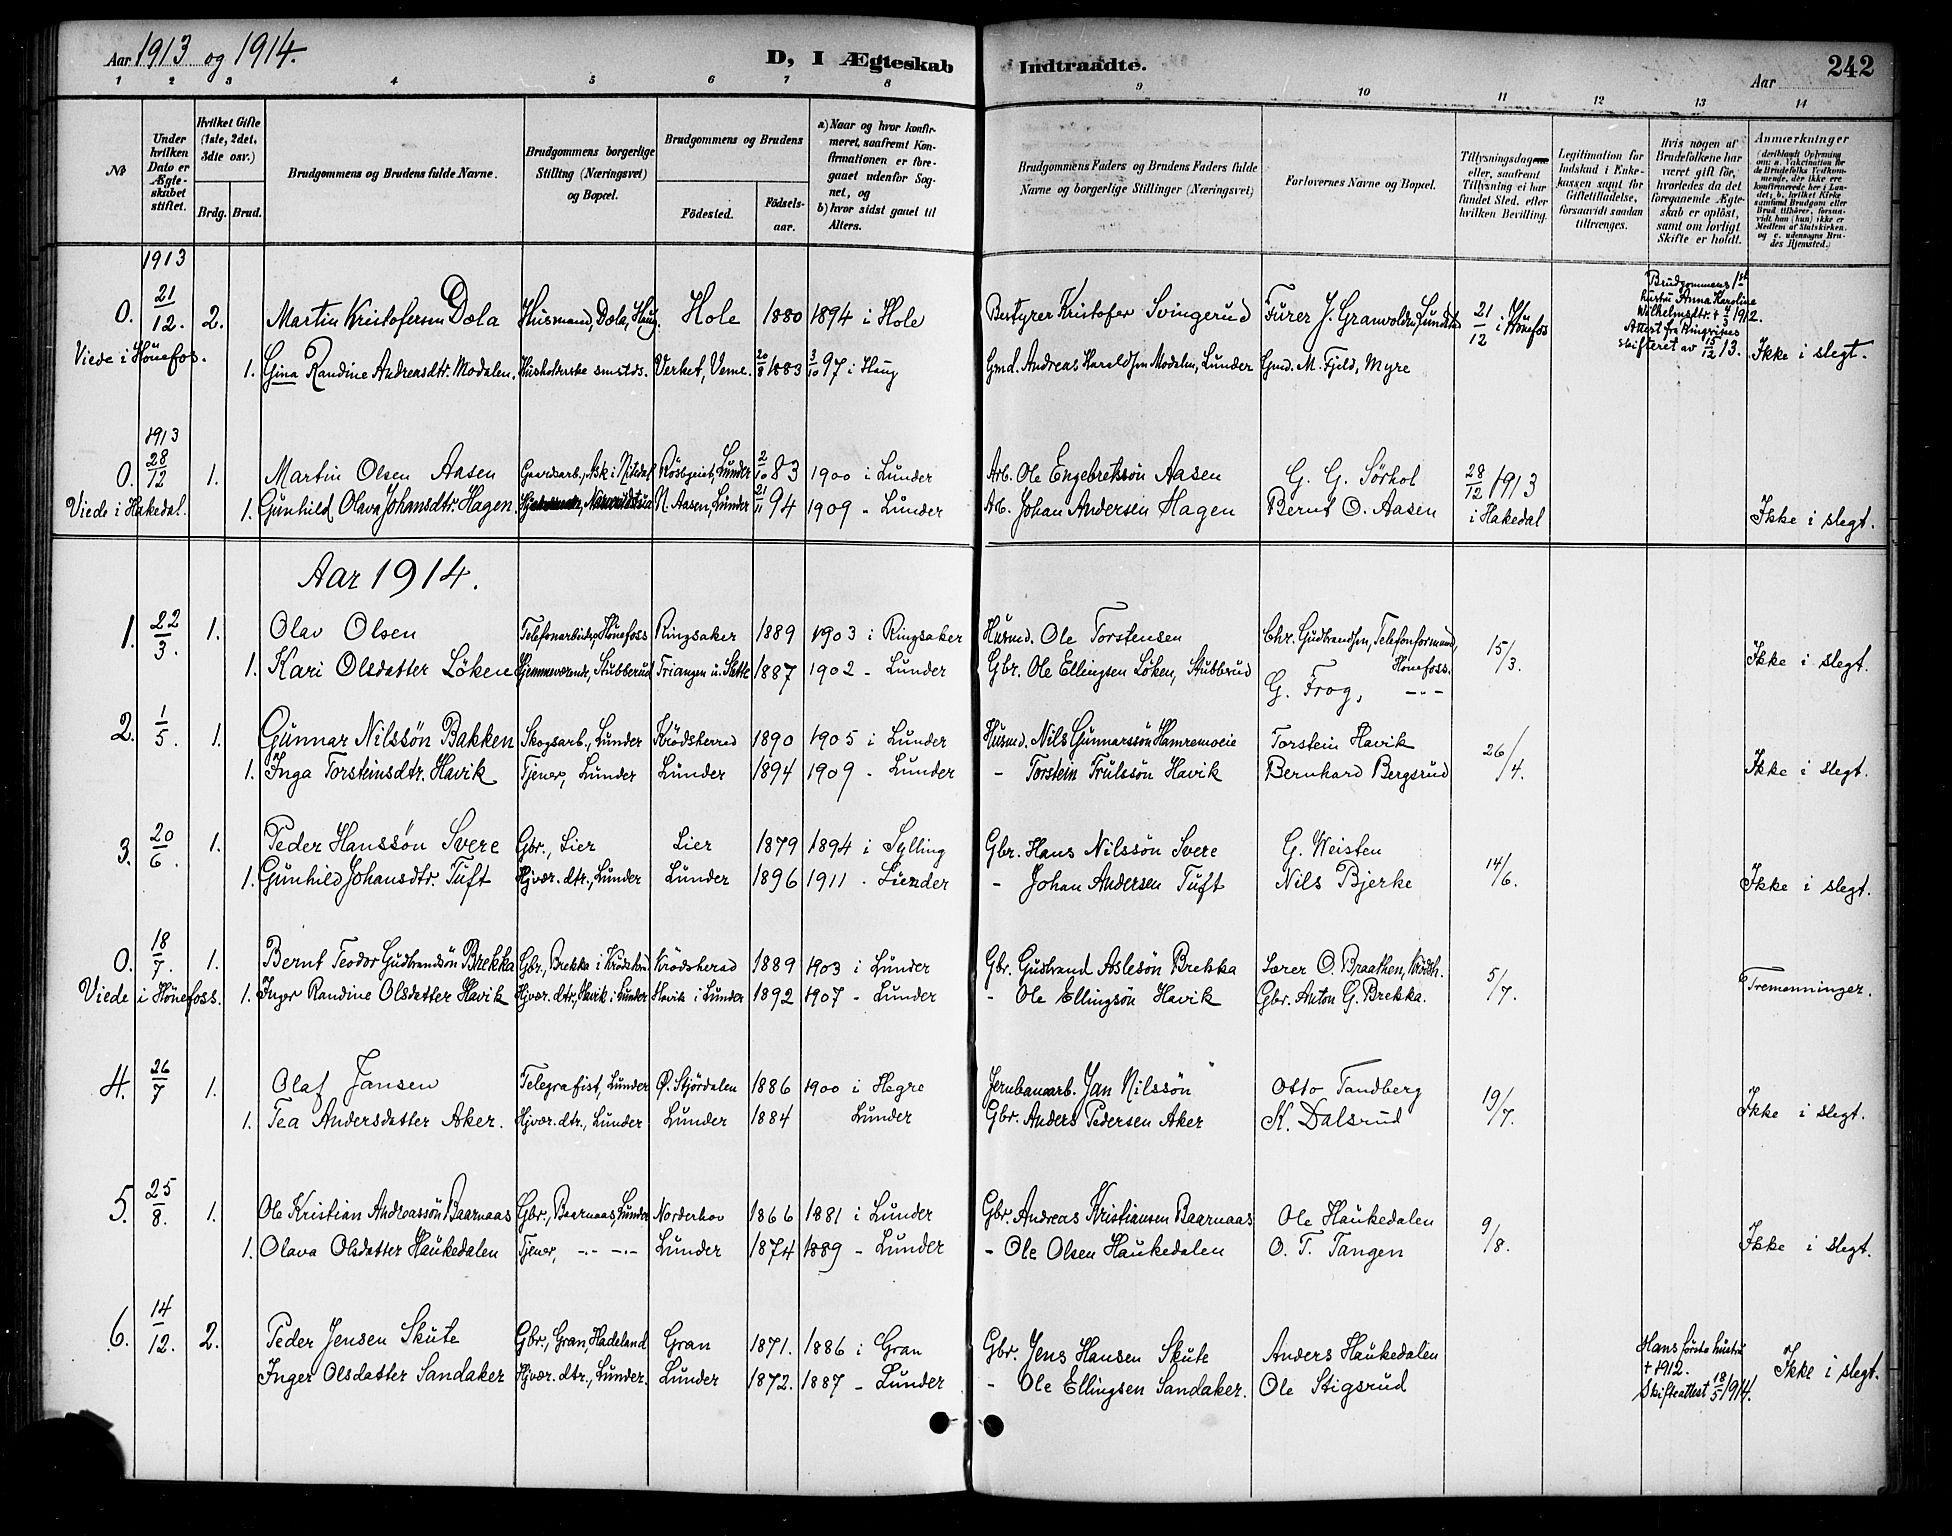 Aar 1913 og 1914.
D, I Ægteskab Indtraadte.
Aar
242
1 2 3 4 5 6 7 8 9 10 11 12 13 14
No
Under hvilken Dato er Ægteskabet stiftet.
Hvilket Gifte (1ste, 2det, 3die osv.)
Brdg. Brud.
Brudgommens og Brudens fulde Navne.
Brudgommens borgerlige Stilling (Næringsvei) og Bopæl.
Brudgommens og Brudens
Födested.
Födselsaar.
a) Naar og hvor konfirmeret, saafremt Konfirmationen er foregaaet udenfor Sognet, og
b) hvor sidst gaaet til Alters.
Brudgommens Faders og Brudens Faders fulde Navne og borgerlige Stillinger (Næringsvei)
Forlovernes Navne og Bopæl.
Tillysningsdagene eller, saafremt Tillysning ei har fundet Sted, efter hvilken Bevilling.
Legitimation for Indskud i Enkekassen samt for Giftetilladelse, forsaavidt saadan tiltrænges.
Hvis nogen af Brudefolkene har været gift för, hvorledes da det foregaaende Ægteskab er oplöst, samt om lovligt Skifte er holdt.
Anmærkninger
1913
0. 21/12. 2. Martin Kristofersen Dæla Husmand, Dæla, Haug. Hole 1880 1894 i Hole Bestyrer Kristofer Svingerud Furer J. Granvolden, 21/12 i Hönefos
Brudgommens 1st hustru Anna Karoline Wilhelmsdtr. + 1912.
Attest fra Ringerikes skifteret av 15/12 13.
Viede i Hönefos. 1. Gina Randine Andreasdtr. Modalen. smstds. Verket, Veme. 20/8 1883 3/10 97 i Haug Gmd. Andreas Haraldsen Modalen, Lunder Gmd. M. Fjeld, Myre Ikke i slegt.
1913
0. 28/12 1. Martin Olsen Aasen Gaardsarb., Ask i Nitedal Lunder 2/10 83 1900 i Lunder Arb. Ole Engebretsön Aasen G. G. Sörhol 28/12 1913
Viede i Hakedal. 1. Gunhild Olava Johansdtr. Hagen. N. Aasen, Lunder 21/11 94 1909 - Lunder Arb. Johan Andersen Hagen Bernt O. Aasen i Hakedal Ikke i slegt.
Aar 1914.
1. 22/3. 1. Olav Olsen Telefonarbeider, Hönefoss Ringsaker 1889 1903 i Ringsaker Husmd. Ole Torstensen Chr. Gudbrandsen, Telefonformand, Hönefoss. 15/3.
1. Kari Olsdatter Löken Hjemmeværende, Stubberud 1887 1902 - Lunder Gbr. Ole Ellingsen Löken, Stubbrud G. Frog, -"- Ikke i slegt.
2. 1/5. 1. Gunnar Nilssön Bakken Skogsarb., Lunder Krödsherred 1890 1905 i Lunder Husmd. Nils Gunnarssön Hamremoeie Torstein Havik 26/4.
1. Inga Torsteinsdtr. Havik Tjener, Lunder Lunder 1894 1909 - Lunder - Torstein Trulssön Havik Bernhard Bergsrud Ikke i slegt.
3. 20/6. 1. Peder Hanssön Svere Gbr., Lier Lier 1879 1894 i Sylling Gbr. Hans Nilssön Svere G. Weisten 14/6.
1. Gunhild Johansdtr. Tuft Hjvær. dtr., Lunder Lunder 1896 1911 - Lunder - Johan Andersen Tuft Nils Bjerke Ikke i slegt.
0. 18/7. 1. Bernt Teodor Gudbrandsön Brekka Gbr., Brekka i Krödshrd Krödsherad 1889 1903 i Lunder Gbr. Gudbrand Aslesön Brekka Lærer O. Braathen, Krödsh. 5/7.
Viede i Hönefoss. 1. Inger Randine Olsdatter Havik Hjvær. dtr., Havik i Lunder Havik i Lunder 1892 1907 - Lunder - Ole Ellingsön Havik Gbr. Anton G. Brekka. Tremenninger.
4. 26/7 1. Olaf Jansen Telegrafist, Lunder Ö. Stjördalen 1886 1900 i Hegre Jernbanearb. Jan Nilssön Otto Tandberg 19/7.
1. Tea Andersdatter Aker. Hjvær. dtr., Lunder Lunder 1884 Lunder Gbr. Anders Pedersen Aker K. Dalsrud Ikke i slegt.
5. 25/8. 1. Ole Kristian Andreassön Baarnaas Gbr., Baarnaas, Lunder Norderhov 1866 1881 i Lunder Gbr. Andreas Kristiansen Baarnaas Ole Haukedalen 9/8.
1. Olava Olsdatter Haukedalen Tjener, -"- -"- Lunder 1874 1889 - Lunder - Ole Olsen Haukedalen O. T. Tangen Ikke i slegt.
6. 14/12. 2. Peder Jensen Skute Gbr., Gran, Hadeland Gran 1871. 1886 i Gran Gbr. Jens Hansen Skute Anders Haukedalen
Hans første hustru + 1912.
Skifteattest 18/5 1914.
Inger Olsdatter Sandaker Hjvær. dtr., Lunder. Lunder 1872. 1887 - Lunder - Ole Ellingsen Sandaker. Ole Stigsrud Ikke i slegt.